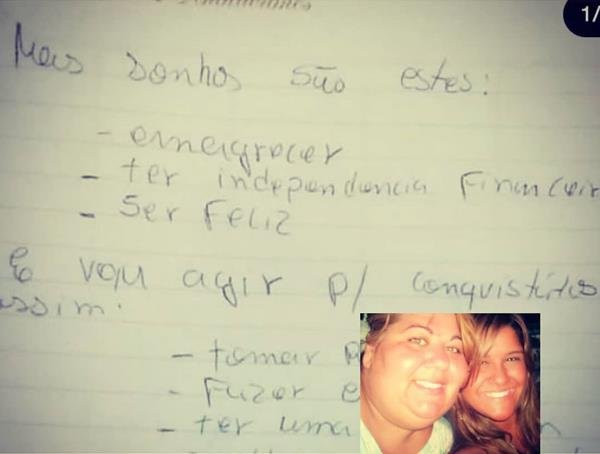 1/
Meus Sonhos são estes:
- emagrecer
- ter independencia Financeir
- Ser Feliz
E vou agir p/ conquistá-los
assim:
- tomar
- Fazer e
- ter uma